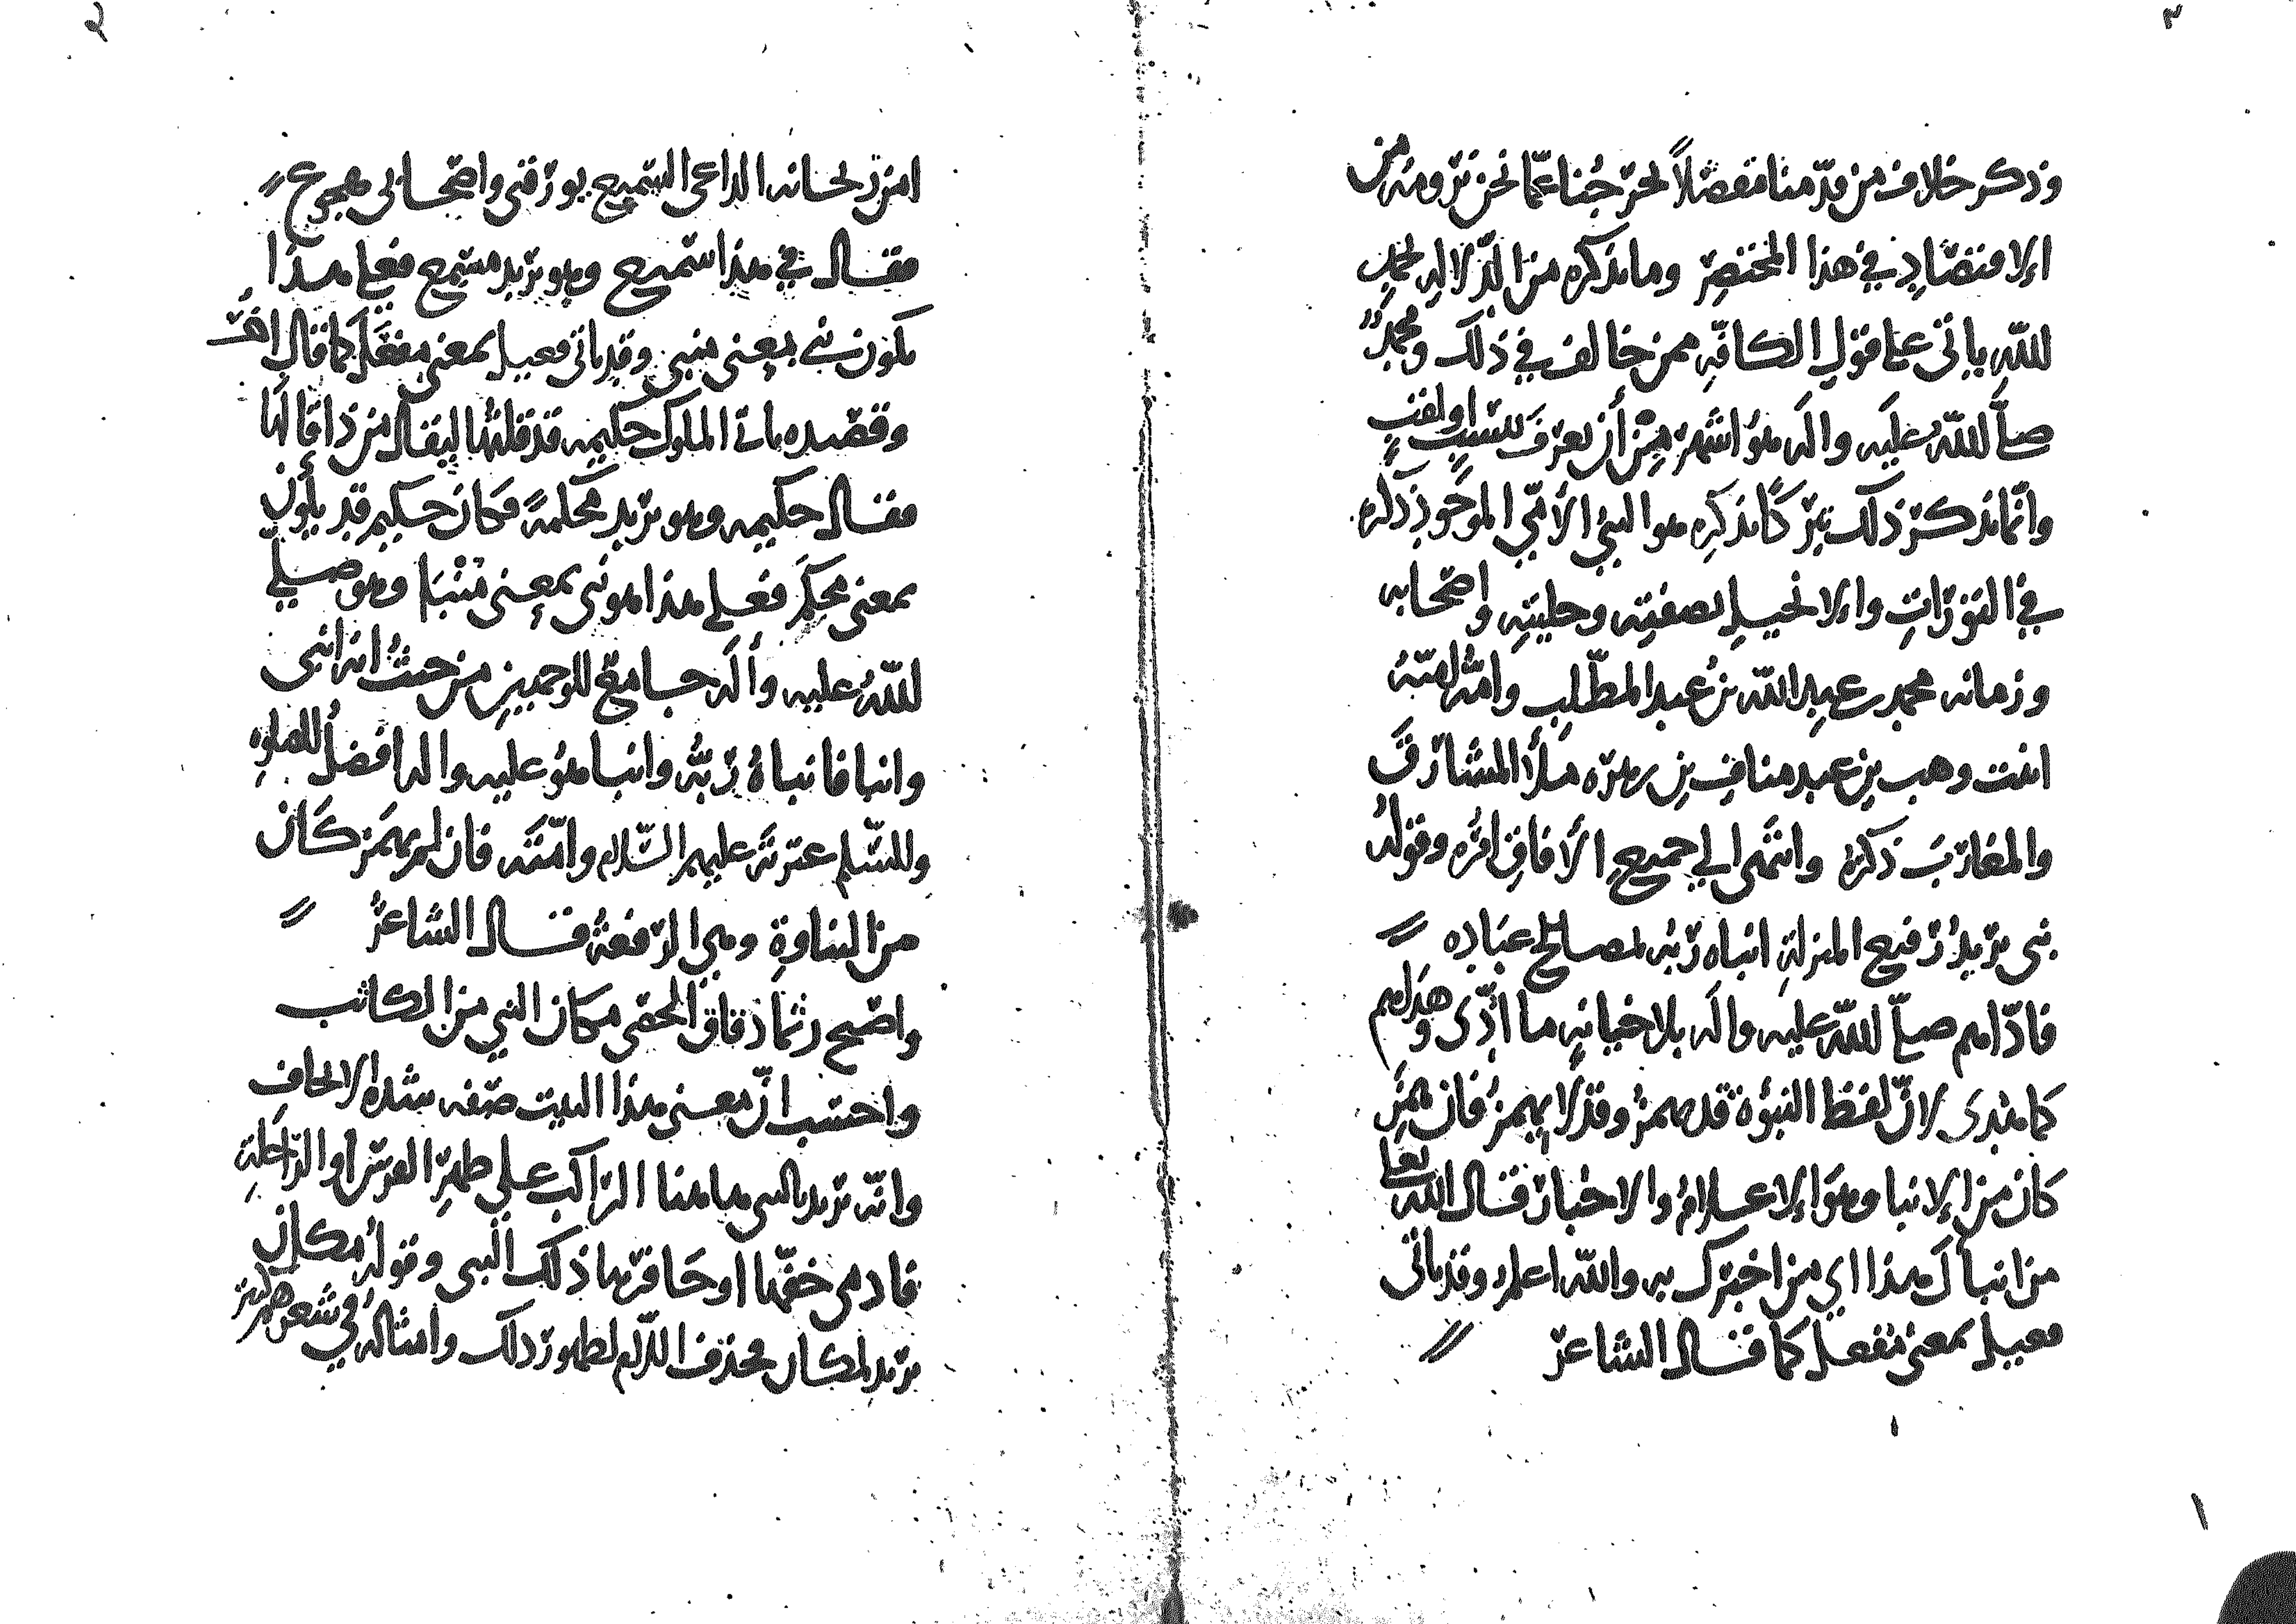 ٣
وذكر خلاف من قدّمنا مفصّلاً لخرجنا عمّا نحن نرومه من
الاقتصاد في هذا المختصر وما نذكره من الدّلاله بحمد
الله ياتي على قول الكافّه ممن خالف في ذلك ومحمد
صلّى الله عليه وآله هو اشهر من أن يعرف بنسب او لقب
وانّما نذكر ذلك تبرّكاً بذكره هو النبي الأمّي الموجود ذكره
في التورات والانجيل بصفته وحليته واصحابه
وزمانه محمد بن عبد الله بن عبد المطّلب وامّه امنة
ابنت وهب بن عبد مناف بن زهره ملأ المشارق
والمغارب ذكره وانتهى الى جميع الأفاق امره وقوله
نبي يريد رفيع المنزلة انباه ربّه لمصالح عباده
فادّاهم صلّى الله عليه وآله بلا خيانة ما ادّى وهداهم
كما هدى لانّ لفظ النبوّة قد يهمز وقد لا يهمز فان همز
كان من الانبا وهو الاعلام والاخبار قال الله تعالى
من انباك هذا اي من اخبرك به والله اعلم وقد ياتي
فعيل بمعنى مفعل كما قال الشاعر
١
٢
امن ريحانه الداعي السميع يورّقني واصحابي هجوع
فقال في هذا سميع وهو يريد مسمع فعلى هذا
يكون نبي بمعنى منبي وقد ياتي فعيل بمعنى مفعَل كما قال
وقصيده تاتي الملوك حكيمه قد قلتها ليقال من ذا قالها
فقال حكيمه وهو يريد محكمة فكان حكيم قد يكون
بمعنى محكم فعلى هذا هو نبي بمعنى منبَا وهو صلى
الله عليه وآله جامع للوجهين من حيث انه انبى
وانبا فانباهُ ربّه وانبا هو عليه واله افضل الصلوه
والسّلم عترته عليهم السّلام وامّته فان لم يهمز كان
من النباوة وهي الرفعة قال الشاعر
واصبح رثما دقاق الحصى مكان النبي من الكاثب
واحسب انّ معنى هذا البيت صفه شده الايجاف
وانّه يريد بالنبي هاهنا الراكب على ظهر الفرس او الراحلة
فادمى خفّها او حافرها ذلك النبي وقوله مكان
يريد لمكان فحذف اللّام لظهور ذلك وامثاله في شعرهم كثير